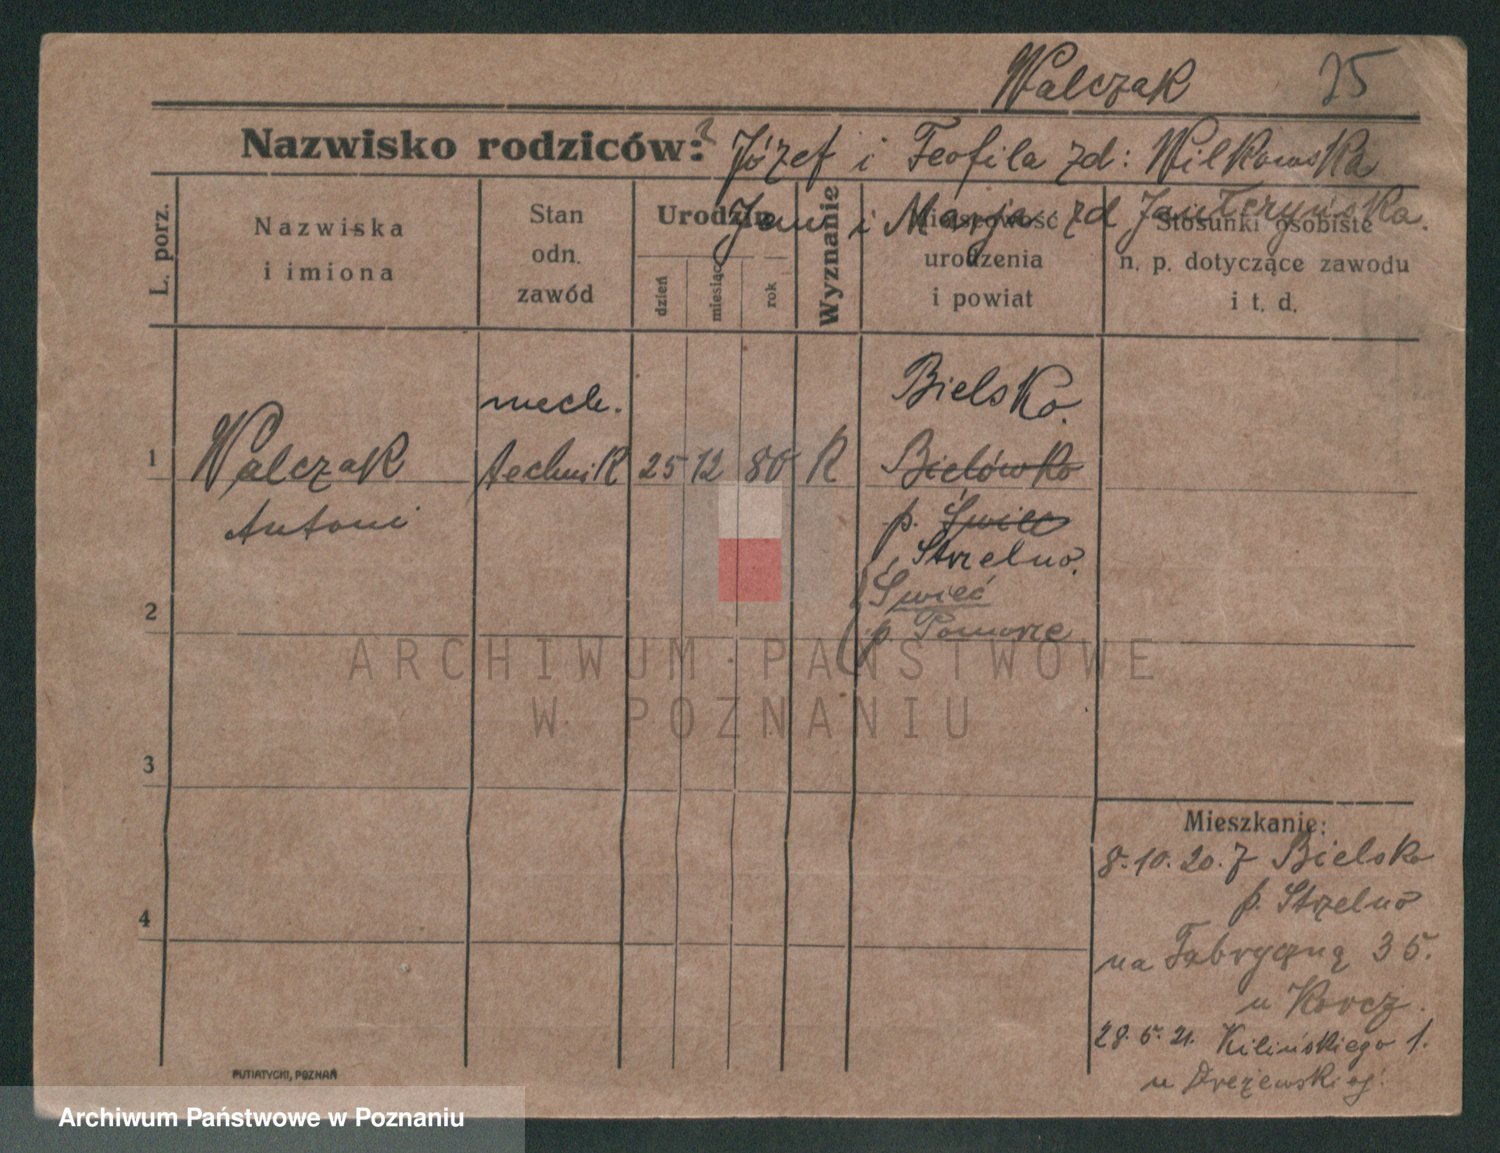 Walczak 25
Nazwisko rodziców: ? Józef i Teofila zd: Wilkowska
Jan i Marja zd Jantczyńska.
L. porz.
Nazwiska
i imiona
Stan
odn.
zawód
Urodzin
dzień
miesiąc
rok
Wyznanie
Miejscowość
urodzenia
i powiat
Stosunki osobiste
n. p. dotyczące zawodu
i t. d.
1
Walczak
Antoni
mech.
technik
25 12 80 K
Bielsko.
Bielówko
p. Świec
Strzelno.
Świeć
p. Pomorze
2
3
4
Mieszkanie:
8.10.20. z Bielsko
p. Strzelno
na Fabryczną 35.
u Korcz.
28.5.21. Kilińskiego 1.
u
PUTIATYCKI, POZNAŃ
ARCHIWUM PAŃSTWOWE
W POZNANIU
Archiwum Państwowe w Poznaniu